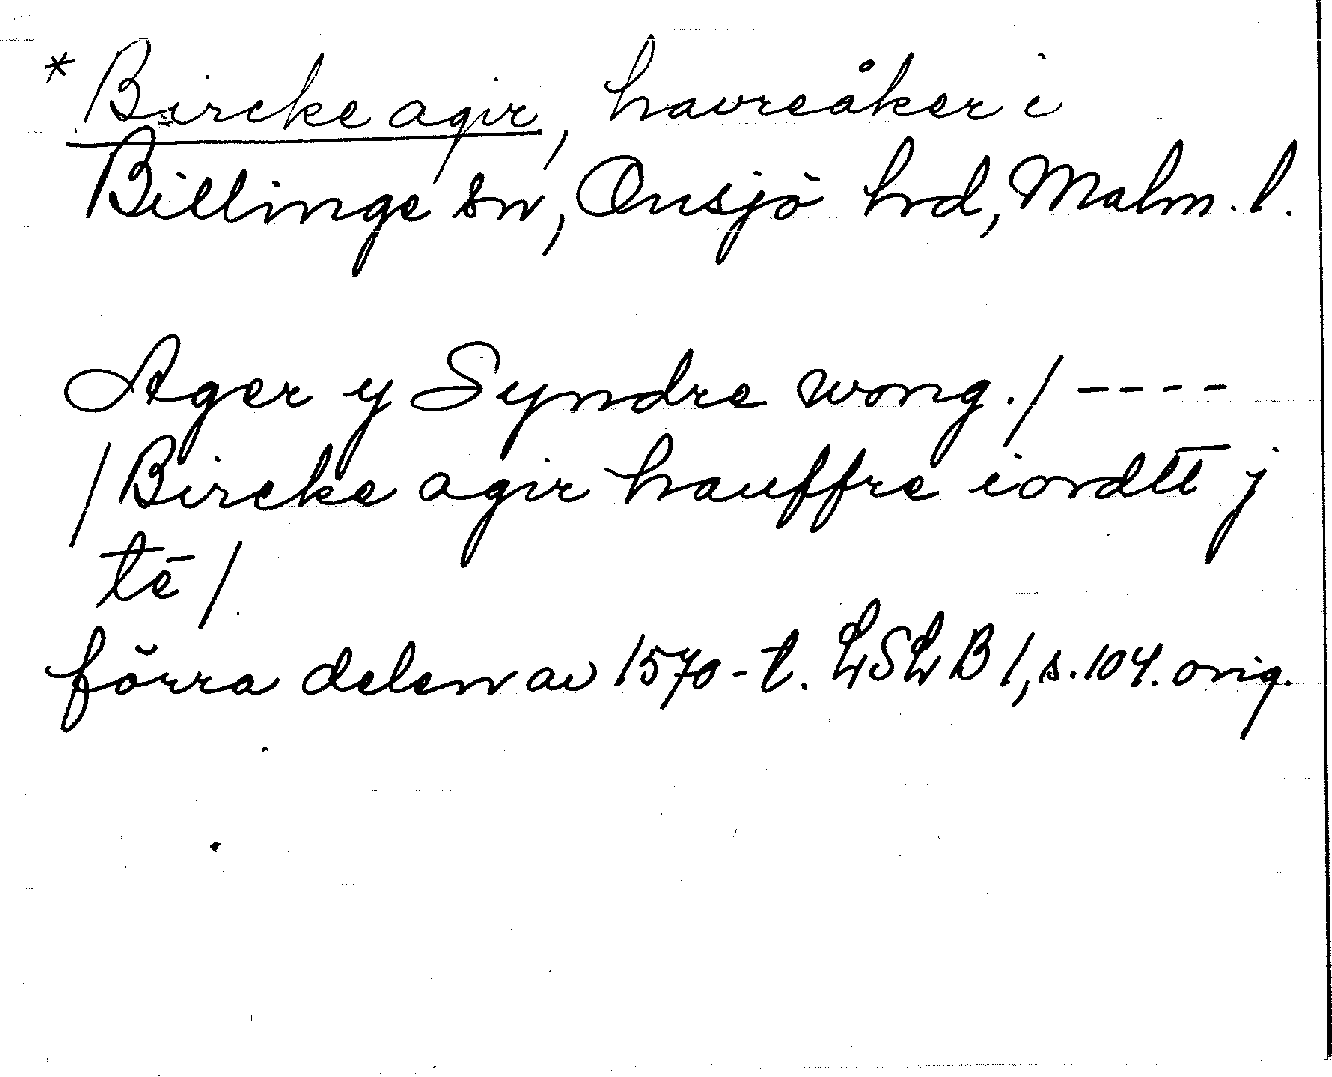 * Bircke agir, havreåker i
Billinge sn, Onsjö hrd, Malm. l.
Ager y Syndre wong. / ----
/ Bircke agir hauffre iordtt j
tē /
förra delen av 1570-t. LSLB 1, s. 104. orig.